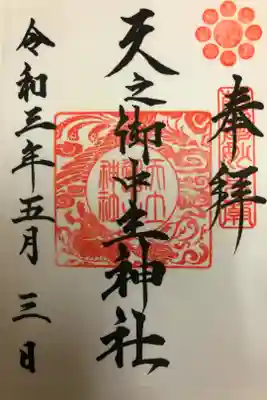 奉拝
天之御中主神社
令和三年五月三日